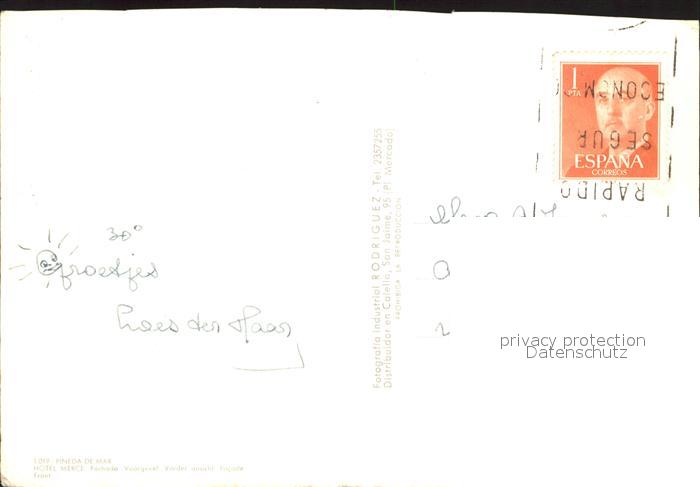 1
PTA
ESPAÑA
CORREOS
ECONOM
SEGUR
RAPIDO
30°
Groetjes
Loes der Haar
Fotografía Industrial RODRIGUEZ - Tel. 2357255
Distribuidor en Calella, San Jaime, 95 (Pl. Mercado)
PROHIBIDA LA REPRODUCCION
privacy protection
Datenschutz
1.019 - PINEDA DE MAR
HOTEL MERCE. Fachada Voorgevel Vorder ansicht Façade
Front